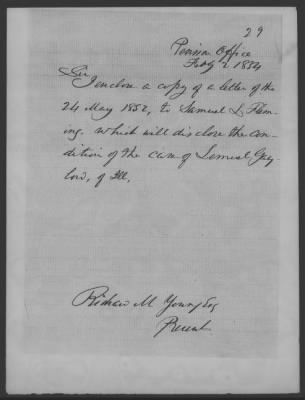 29
Pension Office
Feby 2 1854
Sir
I enclose a copy of a letter of the
24 May 1852, to Samuel D. Flem-
ing. which will disclose the con-
dition of the case of Lemuel Gay-
lord, of Ill,
Richard M Young Esq
Present